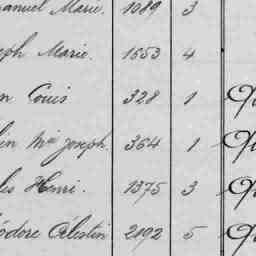 anuel Marie. 1089 3
eph Marie. 1553 4
n Louis 328 1
lin Mie Joseph. 364 1
les Henri. 1375 3
éodore Célestin 2192 5